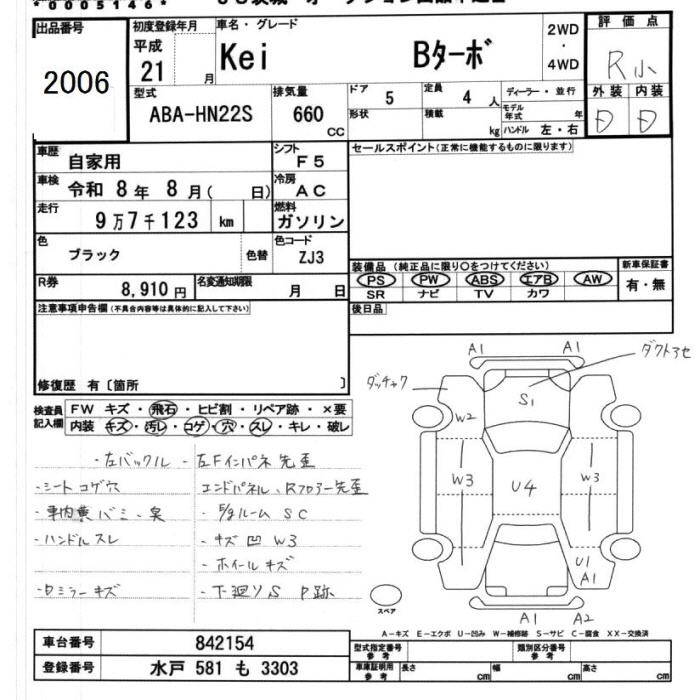 *0005146*
出品番号
2006
初度登録年月
平成
21 月
車名・グレード
Kei Bターボ
2WD
・
4WD
評価点
R小
外装 内装
D D
型式
ABA-HN22S
排気量
660
cc
ドア
5
定員
4 人
形状
積載
kg
ディーラー・並行
モデル
年式 年
ハンドル 左・右
車歴
自家用
シフト
F5
車検
令和 8年 8月( 日)
冷房
AC
走行
9万7千123 km
燃料
ガソリン
色
ブラック
色替
色コード
ZJ3
R券
8,910円
名変通知期限
月 日
セールスポイント(正常に機能するものに限ります)
装備品(純正品に限り○をつけてください)
PS PW ABS エアB AW
SR ナビ TV カワ
新車保証書
有・無
後日品
注意事項申告欄(不具合内容等は具体的に記入して下さい)
修復歴 有〔箇所 〕
検査員
記入欄
FW キズ・飛石・ヒビ割・リペア跡・×要
内装 キズ・汚レ・コゲ・穴・スレ・キレ・破レ
・左バックル
・左Fインパネ先歪
・シートコゲ穴
エンドパネル、Rフロアー先歪
・車内糞バミ、臭
・E/gルーム SC
・ハンドルスレ
・キズ凹 W3
・ホイールキズ
・Dミラーキズ
・下廻りS P跡
A1 A1
ダクト3セ
ダッチャク
S1
W2
W3 U4 W3
U1
A1
A1 A2
スペア
A−キズ E−エクボ U−凹み W−補修跡 S−サビ C−腐食 XX−交換済
車台番号
842154
登録番号
水戸 581 も 3303
型式指定番号
参考
類別区分番号
参考
車庫証明用
参考
長さ cm 幅 cm 高さ cm